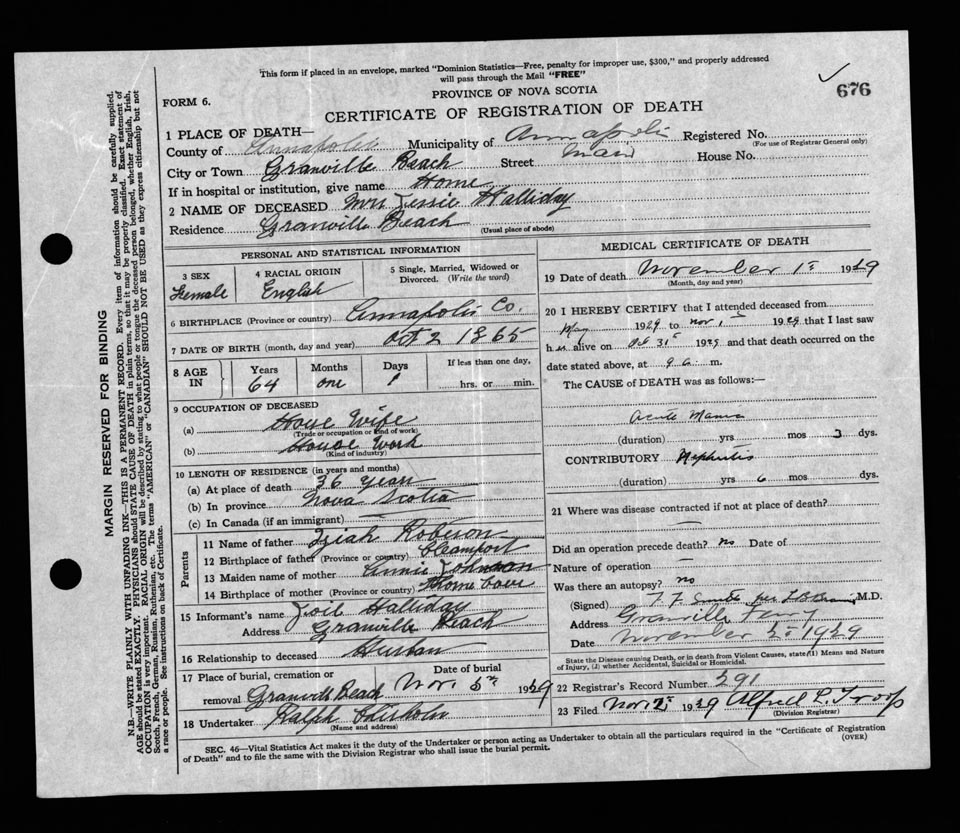 This form if placed in an envelope, marked "Dominion Statistics—Free, penalty for improper use, $300," and properly addressed
will pass through the Mail "FREE"
676
PROVINCE OF NOVA SCOTIA
FORM 6.
CERTIFICATE OF REGISTRATION OF DEATH
1 PLACE OF DEATH—
County of Annapolis Municipality of Annapolis Registered No.
(For use of Registrar General only)
City or Town Granville Beach Street Main House No.
If in hospital or institution, give name Home
2 NAME OF DECEASED Mrs Jessie Halliday
Residence Granville Beach
(Usual place of abode)
PERSONAL AND STATISTICAL INFORMATION
3 SEX 4 RACIAL ORIGIN 5 Single, Married, Widowed or
Divorced. (Write the word)
Female English
6 BIRTHPLACE (Province or country) Annapolis Co.
7 DATE OF BIRTH (month, day and year) Oct 2 1865
8 AGE IN Years Months Days If less than one day,
64 one 1 hrs. or min.
9 OCCUPATION OF DECEASED
(a) House Wife
(Trade or occupation or kind of work)
(b) House Work
(Kind of industry)
10 LENGTH OF RESIDENCE (in years and months)
(a) At place of death 36 years
(b) In province Nova Scotia
(c) In Canada (if an immigrant)
Parents
11 Name of father Roberson
12 Birthplace of father (Province or country)
13 Maiden name of mother Annie Johnson
14 Birthplace of mother (Province or country) Thorne Cove
15 Informant's name Halliday
Address Granville Beach
16 Relationship to deceased Husban
17 Place of burial, cremation or Date of burial
removal Granville Beach Nov. 5th 1929
18 Undertaker Ralph Chisholm
(Name and address)
MEDICAL CERTIFICATE OF DEATH
19 Date of death November 1st 1929
(Month, day and year)
20 I HEREBY CERTIFY that I attended deceased from
May 1929 to Nov 1 1929 that I last saw
her alive on Oct 31st 1929 and that death occurred on the
date stated above, at 9 a. m.
The CAUSE of DEATH was as follows:—
Acute Mania
(duration) yrs mos 3 dys.
CONTRIBUTORY Nephritis
(duration) yrs 6 mos dys.
21 Where was disease contracted if not at place of death?
Did an operation precede death? no Date of
Nature of operation
Was there an autopsy? no
(Signed) M.D.
Address Granville Ferry
Date November 2nd 1929
State the Disease causing Death, or in death from Violent Causes, state (1) Means and Nature
of Injury, (2) whether Accidental, Suicidal or Homicidal.
22 Registrar's Record Number 291
23 Filed Nov. 1929 Alfred L. Troop
(Division Registrar)
SEC. 46—Vital Statistics Act makes it the duty of the Undertaker or person acting as Undertaker to obtain all the particulars required in the "Certificate of Registration
of Death" and to file the same with the Division Registrar who shall issue the burial permit.
(OVER)
MARGIN RESERVED FOR BINDING
N.B.—WRITE PLAINLY WITH UNFADING INK—THIS IS A PERMANENT RECORD. Every item of information should be carefully supplied.
AGE should be stated EXACTLY. PHYSICIANS should STATE CAUSE OF DEATH in plain terms, so that it may be properly classified. Exact statement of
OCCUPATION is very important. RACIAL ORIGIN will be described by stating to what people or tongue the deceased person belonged, whether English, Irish,
Scotch, French, German, Russian, Ruthenian, etc. The terms "AMERICAN" or "CANADIAN" SHOULD NOT BE USED as they express citizenship but not
a race or people. See instructions on back of Certificate.